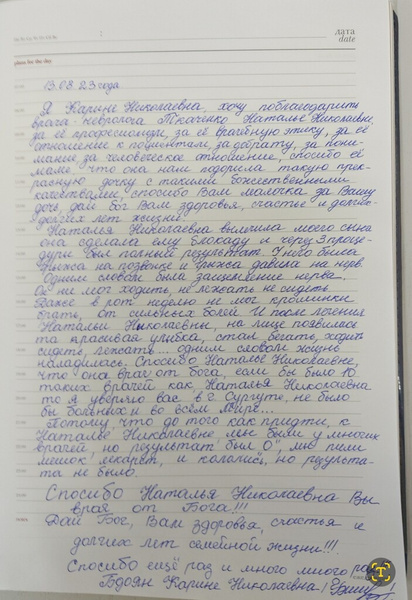 дата
date
plan for the day
13.03.23 года
Я Карине Николаевна, хочу поблагодарить
врача невролога Ткаченко Наталье Николаевну
за её професионизм, за её врачебную этику, за её
отношение к поциентам, за доброту, за пони-
мание, за человеческое отношение, спосибо её
маме, что она нам подорила такую прек-
расную дочку с такими божественными
качествами, спосибо Вам мамочка за Вашу
дочь, дай бог Вам здоровья, счастье и долгих-
долгих лет жизни.
Наталья Николаевна вылечила моего сына
она сделала ему блокаду и через 3 проце-
дуры был полный результат. У него была
грыжа на позвонке и грыжа давила на нерв.
Одним словом была защемление нерва...
Он ни мог ходить, не лежать не сидеть.
Даже в рот неделю не мог крошинки
брать, от сильных болей. И после лечения
Натальи Николаевны, на лице появилась
та красивая улыбка, стал бегать, ходить
сидеть, лежать... одним словом жизнь
наладилась. Спосибо Наталье Николаевне,
что она врач от бога, если бы было 10
таких врачей как Наталья Николаевна
то я уверяю вас в г. Сургуте, не было
бы больных и во всём мире...
Потому, что до того как придти, к
Наталье Николаевне, мы были у многих
врачей, но результат был "0", мы пили
мешок лекарств, и кололись, но результа-
та не было.
Спосибо Наталья Николаевна Вы
врач от Бога!!!
Дай Бог, Вам здоровья, счастья и
долгих лет семейной жизни!!!.
Спосибо ещё раз и много много раз
Бдоян Карине Николаевна!